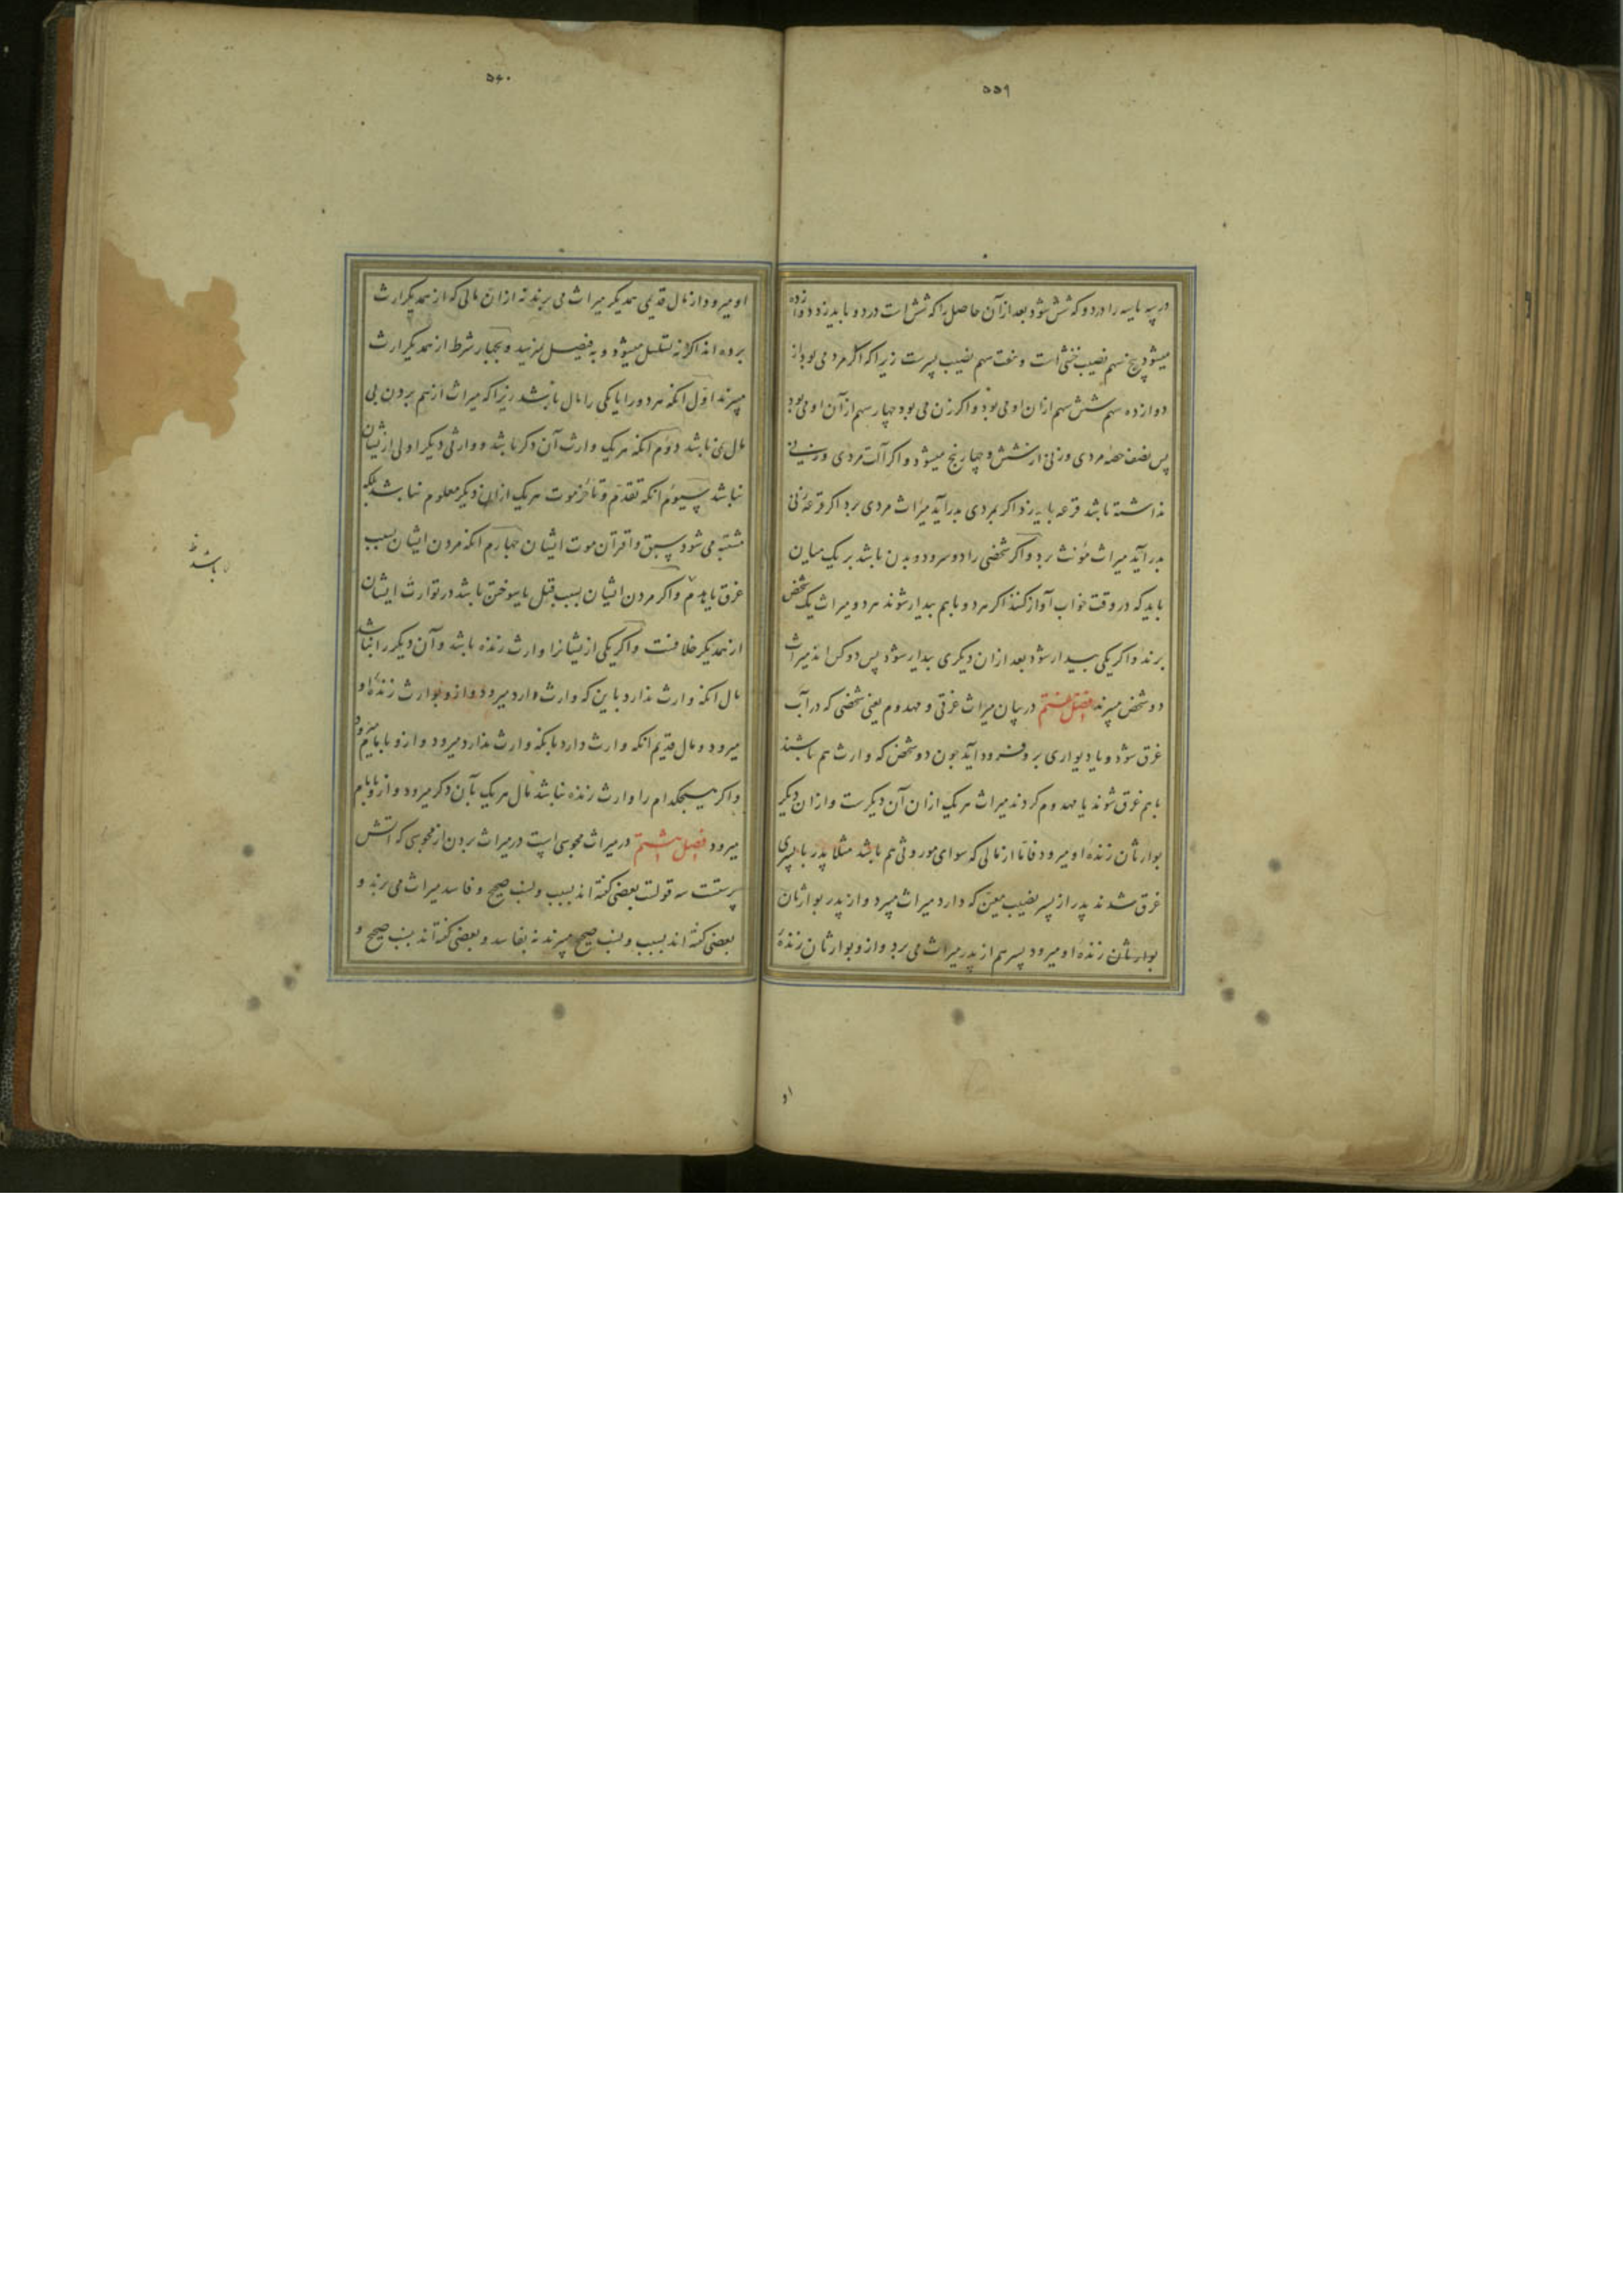 ۵۵۹
در سه یا سه را در دو که شش شود بعد از آن حاصل را که شش است در دو باید زد دوازده
میشود پنج سهم نصیب خنثی است و هفت سهم نصیب پسرست زیرا که اگر مرد می بود از
دوازده سهم شش سهم از ان او می بود و اکر زن می بود چهار سهم از آن او می بود
پس نصف حصه مردی و زنی از شش و چهار پنج میشود و اکر آلت مردی و زنی
نداشته باشد قرعه باید زد اکر بمردی بدر آید میراث مردی برد اکر قرعه زنی
بدر آید میراث مؤنث برد و اکر شخصی را دو سر و دو بدن باشد بر یک میان
باید که در وقت خواب آواز کنند اکر هر دو با هم بیدار شوند هر دو میراث یک شخص
برند و اکر یکی بیدار شود بعد از ان دیکری بیدار شود پس دو کس اند میراث
دو شخص میبرند فصل هفتم در بیان میراث غرقی و مهدوم یعنی شخصی که در آب
غرق شود و یا دیواری بر و فرود آید چون دو شخص که وارث هم باشند
با هم غرق شوند یا مهدوم کردند میراث هر یک از ان آن دیکرست و از ان دیکر
بوارثان زندهٔ او میرود فاما از مالی که سوای موروثی هم باشد مثلا پدر با پسری
غرق شدند پدر از پسر نصیب معین که دارد میراث میبرد و از پدر بوارثان
بوارثان زندهٔ او میرود پسر هم از پدر میراث می برد و از و بوارثان زندهٔ
او
۵۶۰
او میرود از مال قدیمی همدیکر میراث می برند نه از ان مالی که از همدیکر ارث
برده اند اکر نه تسلسل میشود و به فیصل نرسد و بچهار شرط از همدیکر ارث
میبرند اول انکه هر دو را یا یکی را مال باشد زیرا که میراث از هم بردن بی
مال نمی باشد دوم انکه هر یک وارث آن دکر باشد و وارثی دیکر اولی از ایشان
نباشد سیوم انکه تقدم و تأخر موت هر یک از ان دیکر معلوم نباشد بلکه
مشتبه می شود سبق و اقتران موت ایشان چهارم انکه مردن ایشان بسبب
غرق یا هدم و اکر مردن ایشان بسبب قتل یا سوختن باشد در توارث ایشان
از همدیکر خلافست و اکر یکی از یشانرا وارث زنده باشد و آن دیکر را نباشد
مال انکه وارث ندارد باین که وارث دارد میرود و از و بوارث زندهٔ او
میرود و مال قدیم انکه وارث دارد بانکه وارث ندارد میرود و از و بامام میرود
و اکر هیچکدام را وارث زنده نباشد مال هر یک بآن دکر میرود و از و بامام
میرود فصل هشتم در میراث مجوسی است در میراث بردن از مجوسی که آتش
پرستست سه قولست بعضی کفته اند بسبب و نسب صحیح و فاسد میراث می برند و
بعضی کفته اند بسبب و نسب صحیح میبرند نه بفاسد و بعضی کفته اند بنسب صحیح و